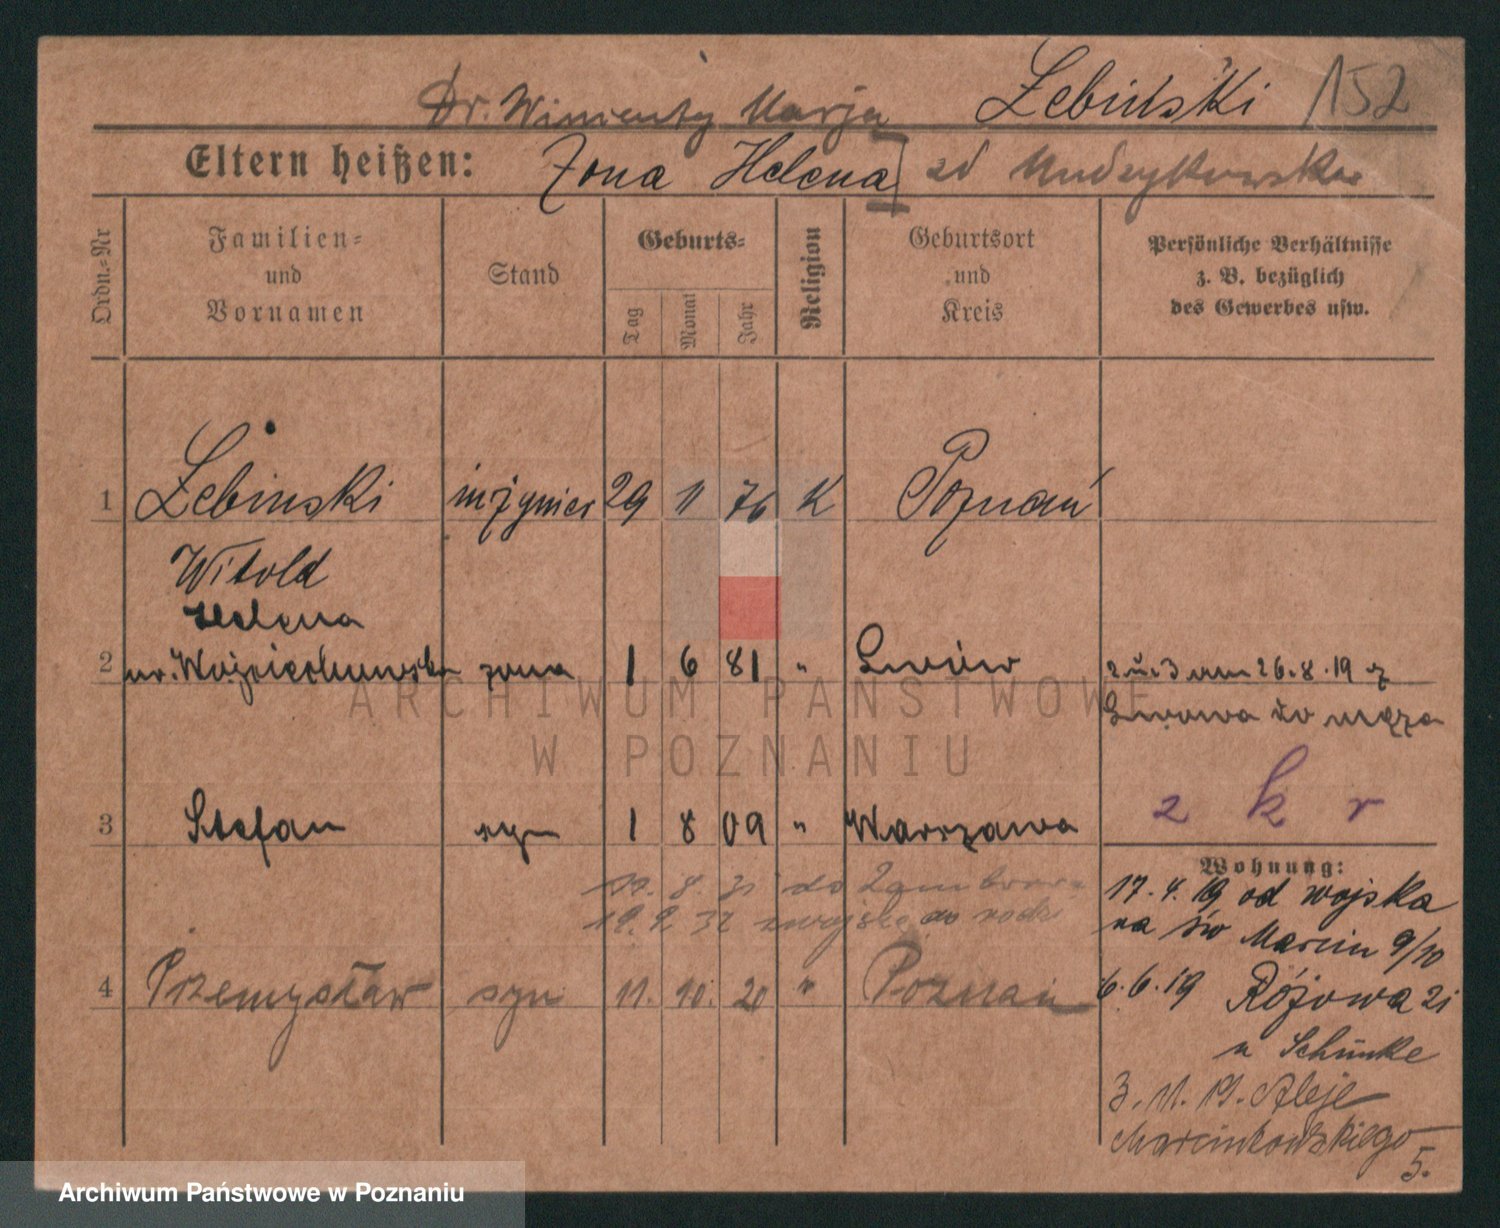 Dr. Wincenty Marja Żebiński 152
Eltern heißen: Żona Helena zd
Ordn.=Nr
Familien=
und
Vornamen
Stand
Geburts=
Tag
Monat
Jahr
Religion
Geburtsort
und
Kreis
Persönliche Verhältnisse
z. B. bezüglich
des Gewerbes usw.
1 Żebinski inżynier 29 11 76 K Poznań
Witold
Helena
2 ur. Wojciechowska żona 1 6 81 " Lwów 2 u. 3 26.8.19 z
Lwowa do męża
z k r
3 Stefan syn 1 8 09 " Warszawa
Wohnung:
17.4.19 od wojska
na św Marcin 9/10
17. 8. 31 do
19. 9. 32 z wojska do
4 Przemysław syn 11. 10. 20 " Poznań
6.6.19 Różowa 21
u Schunke
3.11.19. Aleje
Marcinkowskiego
5.
ARCHIWUM PAŃSTWOWE
W POZNANIU
Archiwum Państwowe w Poznaniu